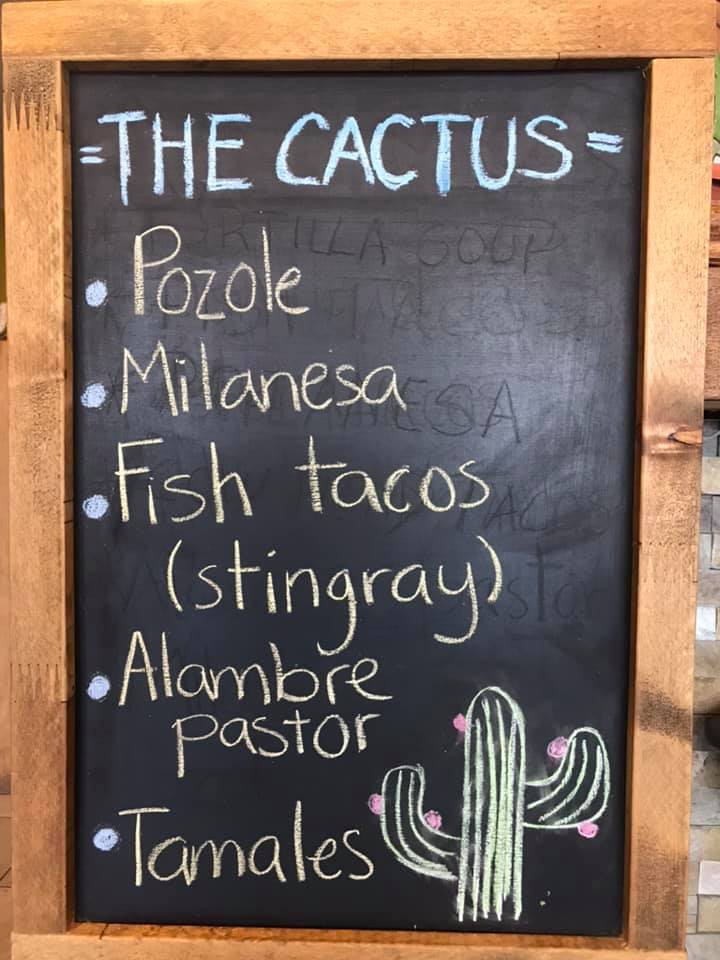 =THE CACTUS=
• Pozole
• Milanesa
• Fish tacos
(stingray)
• Alambre
pastor
• Tamales